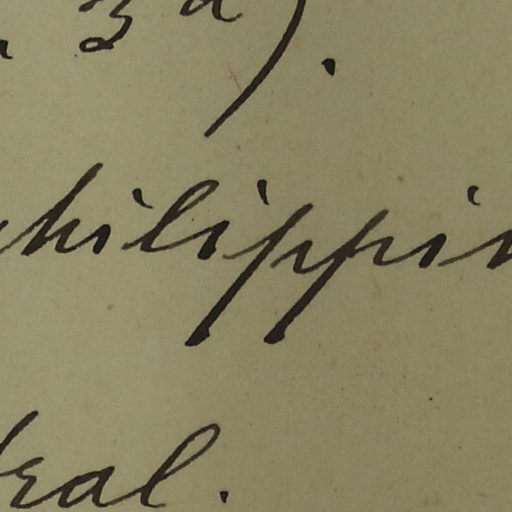 3d).
hilippin
ral.